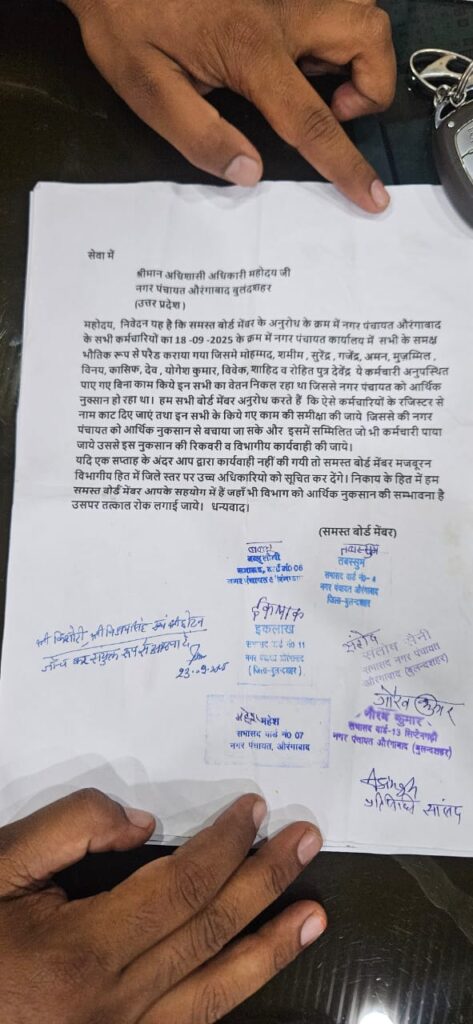 सेवा में
श्रीमान अधिशासी अधिकारी महोदय जी
नगर पंचायत औरंगाबाद बुलंदशहर
(उत्तर प्रदेश )
महोदय, निवेदन यह है कि समस्त बोर्ड मेंबर के अनुरोध के क्रम में नगर पंचायत औरंगाबाद
के सभी कर्मचारियों का 18 -09 -2025 के क्रम में नगर पंचायत कार्यालय में सभी के समक्ष
भौतिक रूप से परैड कराया गया जिसमे मोहम्मद, शमीम , सुरेंद्र , गजेंद्र, अमन, मुज़म्मिल ,
विनय, कासिफ, देव , योगेश कुमार, विवेक, शाहिद व रोहित पुत्र देवेंद्र ये कर्मचारी अनुपस्थित
पाए गए बिना काम किये इन सभी का वेतन निकल रहा था जिससे नगर पंचायत को आर्थिक
नुक्सान हो रहा था। हम सभी बोर्ड मेंबर अनुरोध करते हैं कि ऐसे कर्मचारियों के रजिस्टर से
नाम काट दिए जाएं तथा इन सभी के किये गए काम की समीक्षा की जाये जिससे की नगर
पंचायत को आर्थिक नुकसान से बचाया जा सके और इसमें सम्मिलित जो भी कर्मचारी पाया
जाये उससे इस नुकसान की रिकवरी व विभागीय कार्यवाही की जाये।
यदि एक सप्ताह के अंदर आप द्वारा कार्यवाही नहीं की गयी तो समस्त बोर्ड मेंबर मजबूरन
विभागीय हित में जिले स्तर पर उच्च अधिकारियो को सूचित कर देंगे। निकाय के हित में हम
समस्त बोर्ड मेंबर आपके सहयोग में हैं जहाँ भी विभाग को आर्थिक नुकसान की सम्भावना है
उसपर तत्काल रोक लगाई जाये। धन्यवाद।
(समस्त बोर्ड मेंबर)
सभासद, वार्ड नं0 06
नगर पंचायत
तबस्सुम
तबस्सुम
सभासद वार्ड नं०- 4
नगर पंचायत औरंगाबाद
जिला-बुलन्दशहर
इकलाख
इकलाख
सभासद वार्ड नं0 11
नगर पंचायत औरंगाबाद
(जिला-बुलन्दशहर)
संतोष
संतोष सैनी
सभासद नगर पंचायत
औरंगाबाद (बुलन्दशहर)
श्री किशोरी, श्री
जाँच कर संयुक्त रूप से
23
महेश महेश
सभासद वार्ड नं0 07
नगर पंचायत, औरंगाबाद
गौरव कुमार
गौरव कुमार
सभासद वार्ड-13
नगर पंचायत औरंगाबाद (बुलन्दशहर)
प्रतिनिधि सांसद